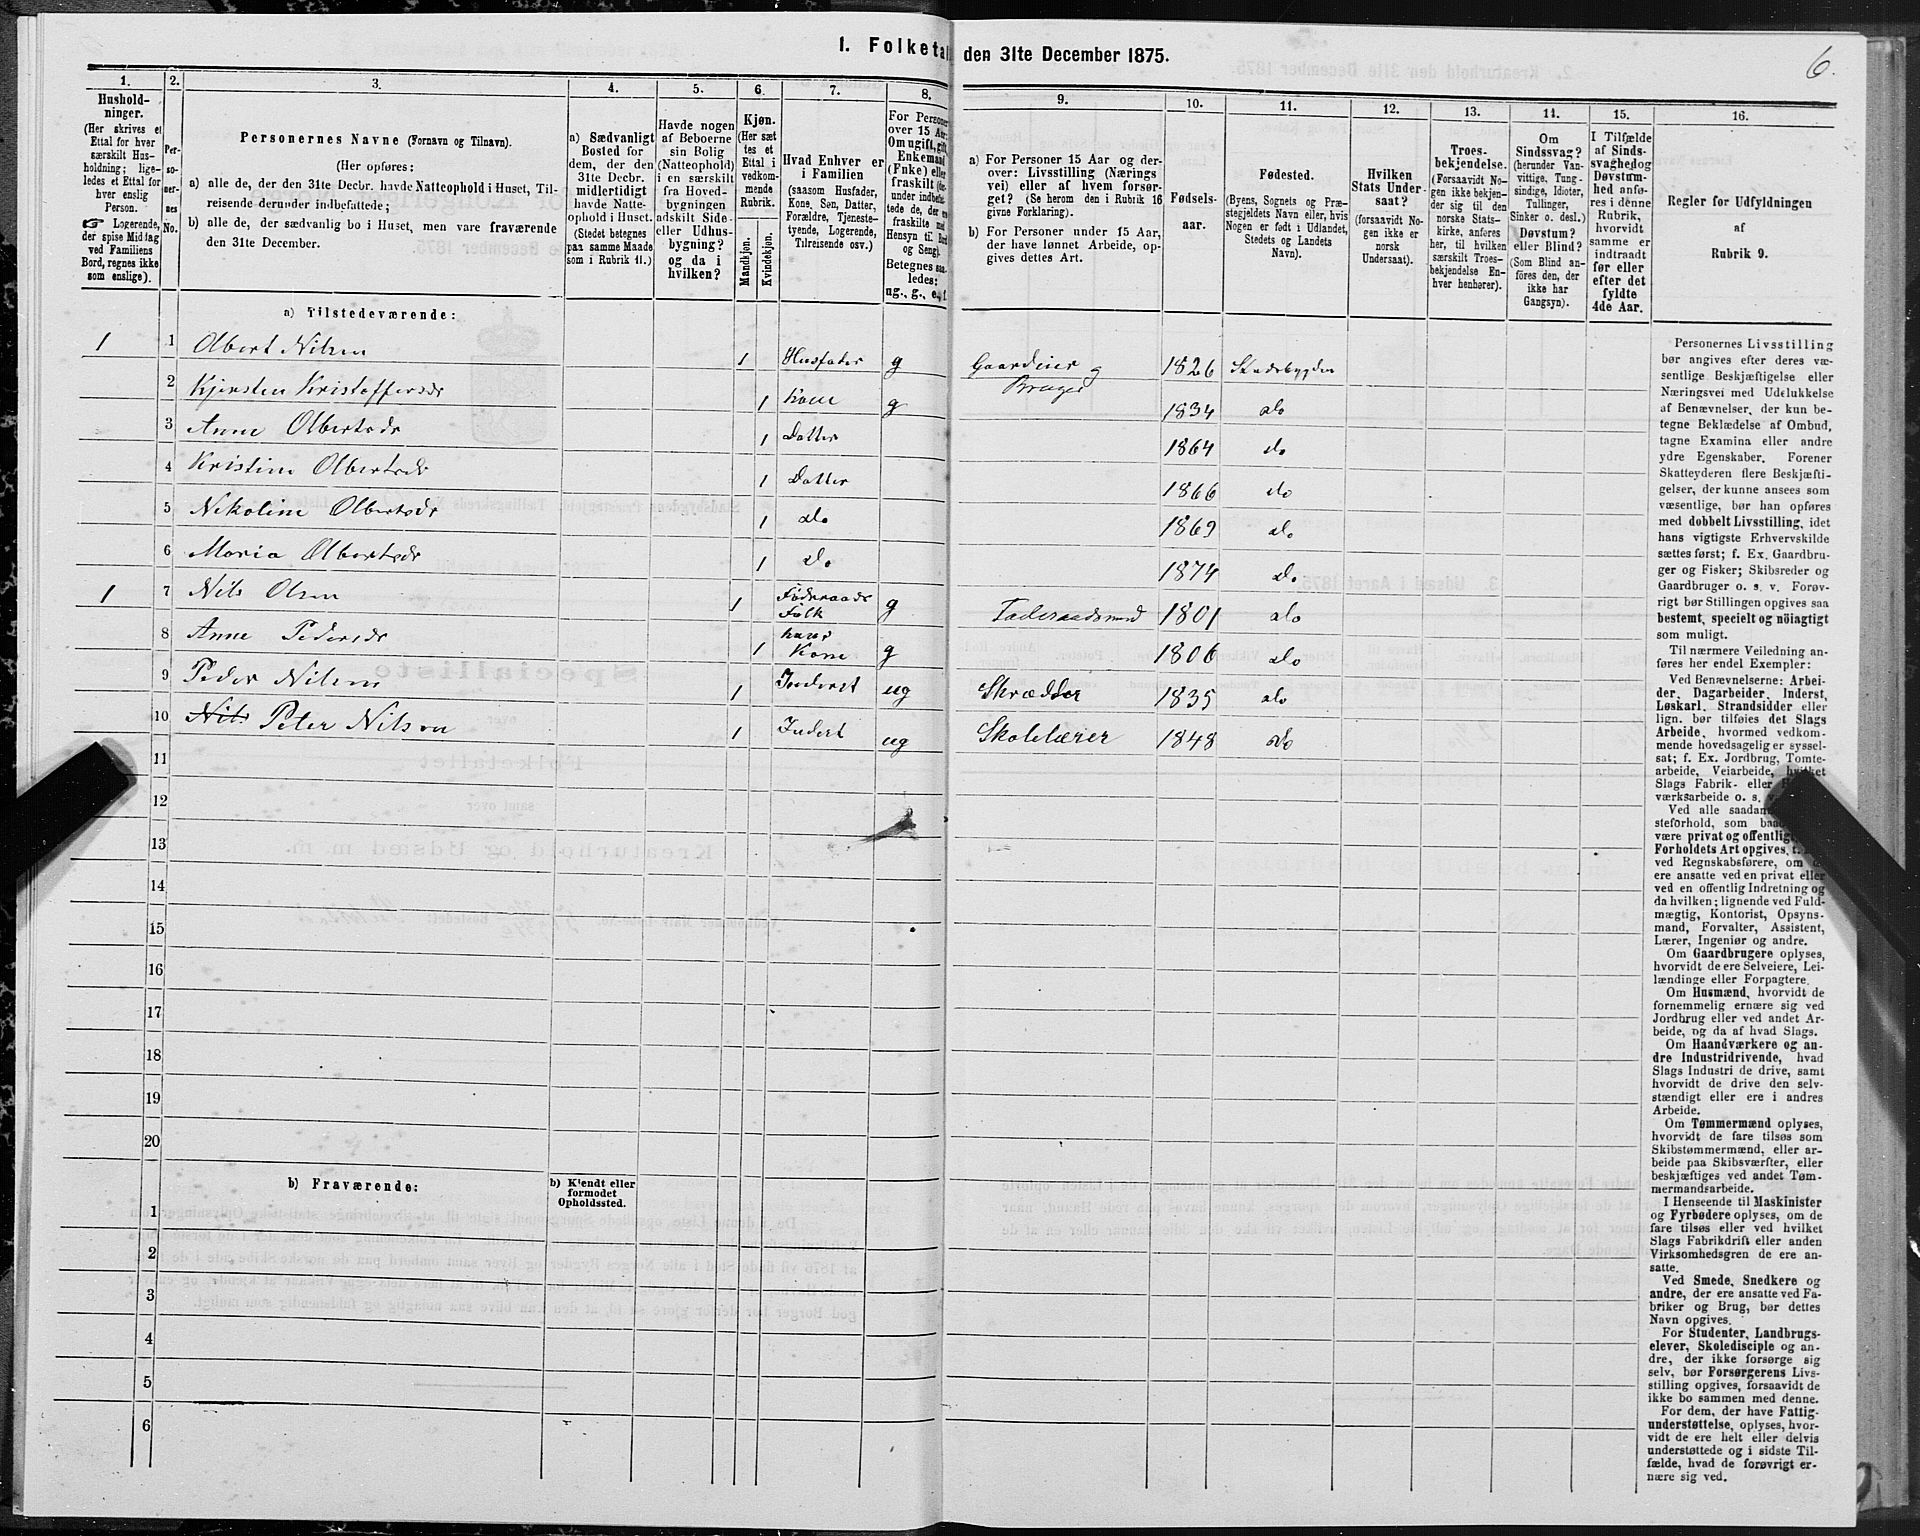 1. Folketal
den 31te December 1875.
6.
1.
2.
3.
4.
5.
6.
7.
8.
9.
10.
11.
12.
13.
14.
15.
16.
Hushold-
ninger.
(Her skrives et
Ettal for hver
særskilt Hus-
holdning; lige-
ledes et Ettal for
hver enslig
Person.
☞ Logerende,
der spise Middag
ved Familiens
Bord, regnes ikke
som enslige).
Per-
so-
ner-
nes
No.
Personernes Navne (Fornavn og Tilnavn).
(Her opføres:
a) alle de, der den 31te Decbr. havde Natteophold i Huset, Til-
reisende derunder indbefattede;
b) alle de, der sædvanlig bo i Huset, men vare fraværende
den 31te December.
a) Sædvanligt
Bosted for
dem, der den
31te Decbr.
midlertidigt
havde Natte-
ophold i Huset.
(Stedet betegnes
paa samme Maade
som i Rubrik 11.)
Havde nogen
af Beboerne
sin Bolig
(Natteophold)
i en særskilt
fra Hoved-
bygningen
adskilt Side-
eller Udhus-
bygning?
og da i
hvilken?
Kjøn.
(Her sæt-
tes et
Ettal i
vedkom-
mende
Rubrik.
Mandkjøn.
Kvindekjøn.
Hvad Enhver er
i Familien
(saasom Husfader,
Kone, Søn, Datter,
Forældre, Tjeneste-
tyende, Logerende,
Tilreisende osv.)
For Personer
over 15 Aar:
Om ugift, gift,
Enkemand
(Enke) eller
fraskilt
Betegnes saa-
ledes:
ug., g., e., f.
a) For Personer 15 Aar og der-
over: Livsstilling (Nærings
vei) eller af hvem forsør-
get? (Se herom den i Rubrik 16
givne Forklaring).
b) For Personer under 15 Aar,
der have lønnet Arbeide, op-
gives dettes Art.
Fødsels-
aar.
Fødested.
(Byens, Sognets og Præ-
stegjeldets Navn eller, hvis
Nogen er født i Udlandet,
Stedets og Landets
Navn).
Hvilken
Stats Under-
saat?
(forsaavidt No-
gen ikke er
norsk
Undersaat).
Troes-
bekjendelse.
(Forsaavidt No-
gen ikke bekjen-
der sig til den
norske Stats-
kirke, anføres
her, til hvilken
særskilt Troes-
bekjendelse En-
hver henhører).
Om
Sindssvag?
(herunder Van-
vittige, Tung-
sindige, Idioter,
Tullinger,
Sinker o. desl.)
Døvstum?
eller Blind?
(Som Blind an-
føres den, der
ikke har
Gangsyn).
I Tilfælde
af Sinds-
svaghed og
Døvstum-
hed anfø-
res i denne
Rubrik,
hvorvidt
samme er
indtraadt
før eller
efter det
fyldte
4de Aar.
Regler for Udfyldningen
af
Rubrik 9.
a) Tilstedeværende:
1 1 Olbert Nilsen 1 Husfader g Gaardeier og Bruger 1826 Stadsbygden
2 Kjersten Kristoffersdr 1 Kone g 1834 do
3 Anne Olbertsdr 1 Datter 1864 do
4 Kristine Olbertsdr 1 Datter 1866 do
5 Nikoline Olbertsdr 1 do 1869 do
6 Maria Olbertsdr 1 do 1874 do
1 7 Nils Olsen 1 Føderaads Folk g Føderaadsmd 1801 do
8 Anne Pedersdr 1 hans Kone g 1806 do
9 Peder Nilsen 1 Inderst ug Skrædder 1835 do
10 Nils Peter Nilsen 1 Inderst ug Skolelærer 1848 do
11
12
13
14
15
16
17
18
19
20
b) Fraværende:
b) Kjendt eller
formodet
Opholdssted.
1
2
3
4
5
6
Personernes Livsstilling
bør angives efter deres væ-
sentlige Beskjæftigelse eller
Næringsvei med Udelukkelse
af Benævnelser, der kun be-
tegne Beklædelse af Ombud,
tagne Examina eller andre
ydre Egenskaber. Forener
Skatteyderen flere Beskjæfti-
gelser, der kunne ansees som
væsentlige, bør han opføres
med dobbelt Livsstilling, idet
hans vigtigste Erhvervskilde
sættes først; f. Ex. Gaardbru-
ger og Fisker; Skibsreder og
Gaardbruger o. s. v. Forøv-
rigt bør Stillingen opgives saa
bestemt, specielt og nöiagtigt
som muligt.
Til nærmere Veiledning an-
føres her endel Exempler:
Ved Benævnelserne: Arbei-
der, Dagarbeider, Inderst,
Løskarl, Strandsidder eller
lign. bør tilføies det Slags
Arbeide, hvormed vedkom-
mende hovedsagelig er syssel-
sat; f. Ex. Jordbrug, Tomte-
arbeide, Veiarbeide, hvilket
Slags Fabrik- eller
værksarbeide o. s. v.
Ved alle saadan
steforhold, som baa
være privat og offentlig
Forholdets Art opgives,
ved Regnskabsførere, om
ere ansatte ved en privat eller
ved en offentlig Indretning og
da hvilken; lignende ved Fuld-
mægtig, Kontorist, Opsyns-
mand, Forvalter, Assistent,
Lærer, Ingeniør og andre.
Om Gaardbrugere oplyses,
hvorvidt de ere Selveiere, Lei-
lændinge eller Forpagtere.
Om Husmænd, hvorvidt de
fornemmelig ernære sig ved
Jordbrug eller ved andet Ar-
beide, og da af hvad Slags.
Om Haandværkere og an-
dre Industridrivende, hvad
Slags Industri de drive, samt
hvorvidt de drive den selv-
stændigt eller ere i andres
Arbeide.
Om Tømmermænd oplyses,
hvorvidt de fare tilsøs som
Skibstømmermænd, eller ar-
beide paa Skibsværfter, eller
beskjæftiges ved andet Tøm-
mermandsarbeide.
I Henseende til Maskinister
og Fyrbødere oplyses, om de
fare tilsøs eller ved hvilket
Slags Fabrikdrift eller anden
Virksomhedsgren de ere an-
satte.
Ved Smede, Snedkere og
andre, der ere ansatte ved Fa-
briker og Brug, bør dettes
Navn opgives.
For Studenter, Landbrugs-
elever, Skoledisciple og an-
dre, der ikke forsørge sig
selv, bør Forsørgerens Livs-
stilling opgives, forsaavidt de
ikke bo sammen med denne.
For dem, der have Fattig-
understøttelse, oplyses, hvor-
vidt de ere helt eller delvis
understøttede og i sidste Til-
fælde, hvad de forøvrigt er-
nære sig ved.